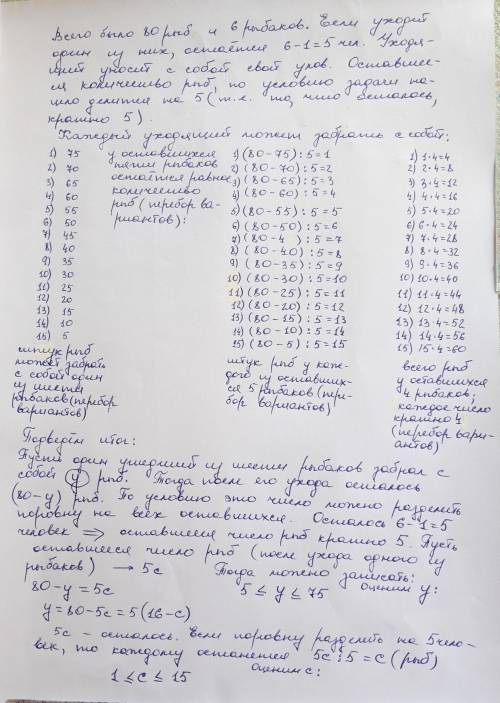 Всего было 80 рыб и 6 рыбаков. Если уходит
один из них, остаётся 6-1=5 чел. Уходя-
щий уносит с собой свой улов. Оставшее-
ся количество рыб, по условию задачи на-
цело делится на 5 (т.к. то, что осталось,
кратно 5).
Каждый уходящий может забрать с собой:
1) 75
2) 70
3) 65
4) 60
5) 55
6) 50
7) 45
8) 40
9) 35
10) 30
11) 25
12) 20
13) 15
14) 10
15) 5
штук рыб
может забрать
с собой один
из шести
рыбаков (перебор
вариантов)
у оставшихся
пяти рыбаков
остаётся равное
количество
рыб (перебор ва-
риантов):
1) (80-75):5=1
2) (80-70):5=2
3) (80-65):5=3
4) (80-60):5=4
5) (80-55):5=5
6) (80-50):5=6
7) (80-4 ):5=7
8) (80-40):5=8
9) (80-35):5=9
10) (80-30):5=10
11) (80-25):5=11
12) (80-20):5=12
13) (80-15):5=13
14) (80-10):5=14
15) (80-5):5=15
штук рыб у каж-
дого из оставших-
ся 5 рыбаков (пере-
бор вариантов)
1) 1·4=4
2) 2·4=8
3) 3·4=12
4) 4·4=16
5) 5·4=20
6) 6·4=24
7) 7·4=28
8) 8·4=32
9) 9·4=36
10) 10·4=40
11) 11·4=44
12) 12·4=48
13) 13·4=52
14) 14·4=56
15) 15·4=60
всего рыб
у оставшихся
4 рыбаков;
каждое число
кратно 4
(перебор вари-
антов)
Подведём итог:
Пусть один ушедший из шести рыбаков забрал с
собой y рыб. Тогда после его ухода осталось
(80-y) рыб. По условию это число можно разделить
поровну на всех оставшихся. Осталось 6-1=5
человек ⟹ оставшееся число рыб кратно 5. Пусть
оставшееся число рыб (после ухода одного из
рыбаков) → 5c Тогда можно записать:
80-y=5c 5 ≤ y ≤ 75 оценим y:
y=80-5c=5(16-c)
5c - осталось. Если поровну разделить на 5 чело-
век, то каждому останется 5c:5=c (рыб)
1 ≤ c ≤ 15 оценим c: